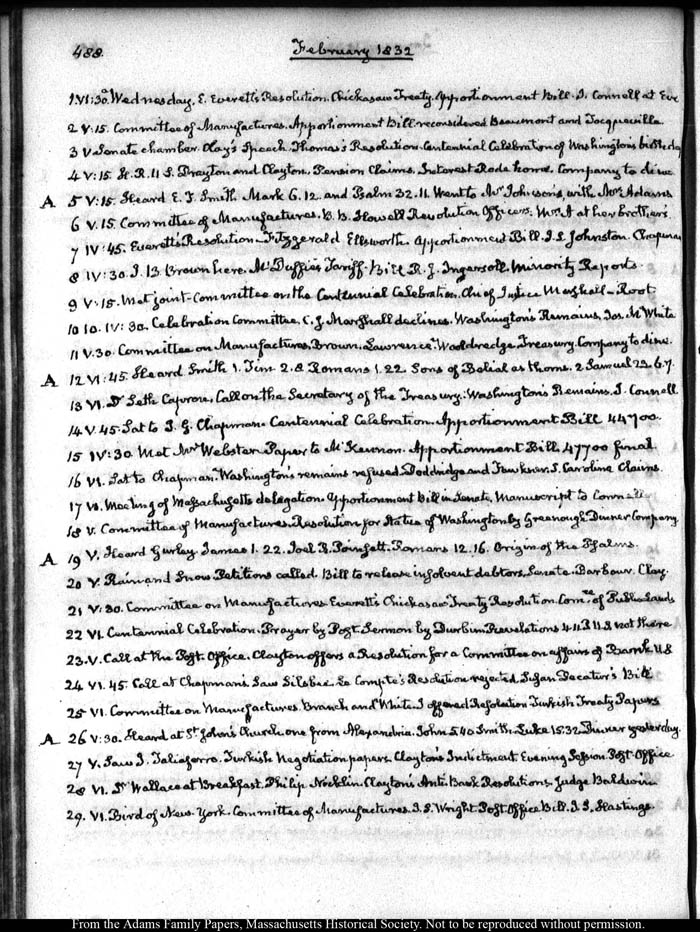 488.
February 1832
1 VI:30. Wednesday. E. Everett's Resolution. Chickasaw Treaty. Apportionment Bill. J. Connell at Eve
2 V:15. Committee of Manufactures. Apportionment Bill reconsidered Beaumont and Tocqueville
3 V Senate chamber. Clay's Speech. Thomas's Resolution. Centennial Celebration of Washington's birthday
4 V:15. H. R. U S. Drayton and Clayton. Pension Claims. Interest Rode home. Company to dine
A 5 V:15. Heard E. J. Smith Mark 6. 12. and Psalm 32. 11. Went to Mr Johnson's, with Mrs Adams
6 V. 15. Committee of Manufactures. B. B. Howell Revolution Officers. Mrs A at her brother's
7 IV:45. Everett's Resolution. Fitzgerald Ellsworth. Apportionment Bill. J. S. Johnston. Chapman
8 IV:30. J. B Brown here. McDuffie's Tariff Bill R. J. Ingersoll. Minority Reports
9 V:15. Met joint-Committee on the Centennial Celebration. Chief Justice Marshall. Root
10 IV:30. Celebration Committee. C. J. Marshall declines. Washington's Remains. Jos. M. White
11 V.30. Committee on Manufactures, Brown. Lawrence. Wooldredge. Treasury. Company to dine.
A 12 VI:45. Heard Smith 1. Tim 2. 8 Romans 1. 22. Sons of Belial as thorns. 2 Samuel 23. 6.7.
13 VI. Dr Seth Capron. Call on the Secretary of the Treasury. Washington's Remains. J. Connell
14 V.45. Sat to J. G. Chapman. Centennial Celebration. Apportionment Bill 44700.
15 IV:30. Met Mr Webster Paper to McKennon. Apportionment Bill. 47700 final
16 VI. Sat to Chapman. Washington's remains refused. Doddridge and Faulkner. S. Carolina Claims.
17 VI. Meeting of Massachusetts delegation. Apportionment Bill in Senate. Manuscript to Connell
18 V. Committee of Manufactures. Resolution for Statue of Washington by Greenough Dinner Company
A 19 V. Heard Gurley James 1. 22. Joel R. Poinsett. Romans 12. 16. Origin of the Psalms.
20 V. Rain and Snow Petitions called. Bill to release insolvent debtors, Senate. Barbour. Clay.
21 V:30. Committee on Manufactures Everett's Chickasaw Treaty Resolution. Comtee of Public Lands
22 VI. Centennial Celebration. Prayer by Post. Sermon by Durbin Revelations 4. 11 not there
23. V. Call at the Post-Office. Clayton offers a Resolution for a Committee on affairs of Bank U S
24 VI. 45. Call at Chapman's Saw Silsbee. Le Compte's Resolution rejected. Susan Decatur's Bill
25 VI. Committee on Manufactures. Branch and White. I offered Resolution Turkish Treaty Papers
A 26 V:30. Heard at St John's Church, one from Alexandria. John 5. 40 Smith. Luke 15. 32. Dinner yesterday.
27 V. Saw J. Taliaferro. Turkish Negotiation papers. Clayton's Indictment Evening Session Post-Office
28 VI. Dr Wallace at Breakfast. Philip Nicklin. Clayton's Anti Bank Resolutions. Judge Baldwin
29. VI. Bird of New-York. Committee of Manufactures. J. S. Wright Post Office Bill. J. S. Hastings.
From the Adams Family Papers, Massachusetts Historical Society. Not to be reproduced without permission.